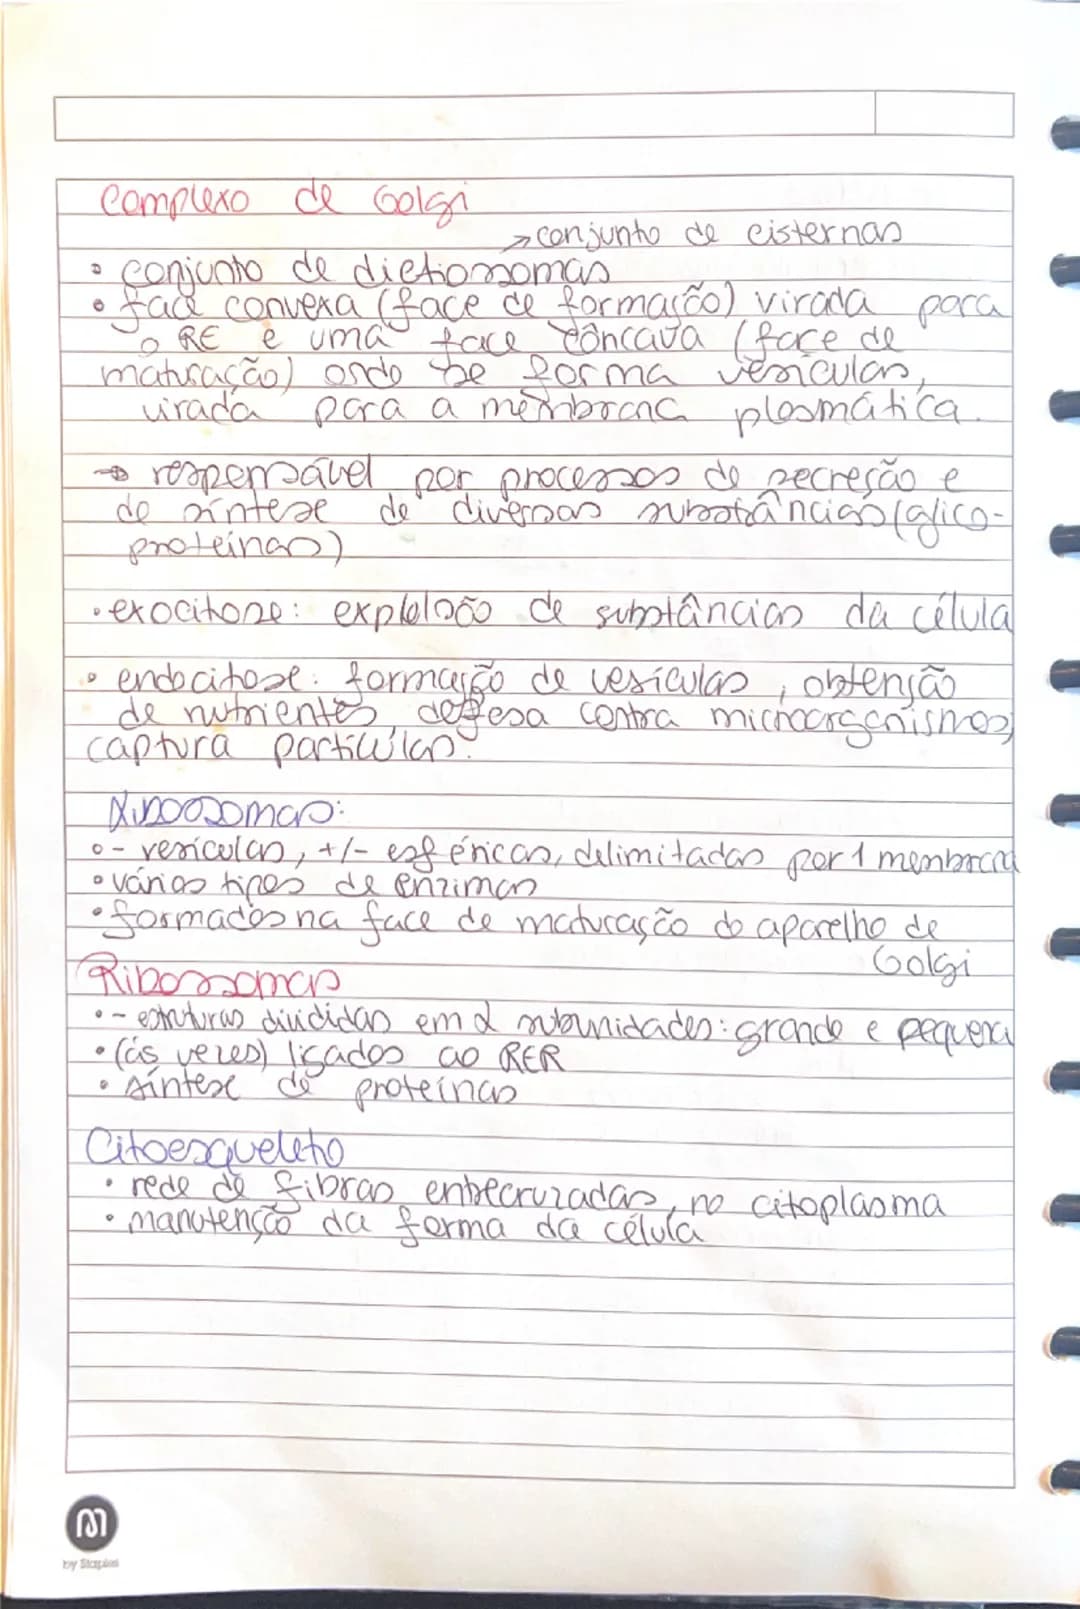 Complexo de Golgi
→ conjunto de cisternas
• conjunto de dictiossomas
• face convexa (face de formação) virada para
o RE e uma face côncava (face de
maturação) onde se forma vesículas,
virada para a membrana plasmática.
→ responsável por processos de secreção e
de síntese de diversas substâncias (glico-
proteínas)
• exocitose: explulsão de substâncias da célula
• endocitose: formação de vesículas, obtenção
de nutrientes, defesa contra microorganismos,
captura partículas.
• - vesículas, +/- esféricas, delimitadas por 1 membrana
• vários tipos de enzimas
• formados na face de maturação do aparelho de
Golgi
Ribossomas
• - estruturas divididas em 2 subunidades: grande e pequena
• (ás vezes) ligados ao RER
• síntese de proteínas
Citoesqueleto
• rede de fibras entrecruzadas, no citoplasma
• manutenção da forma da célula
by Staples